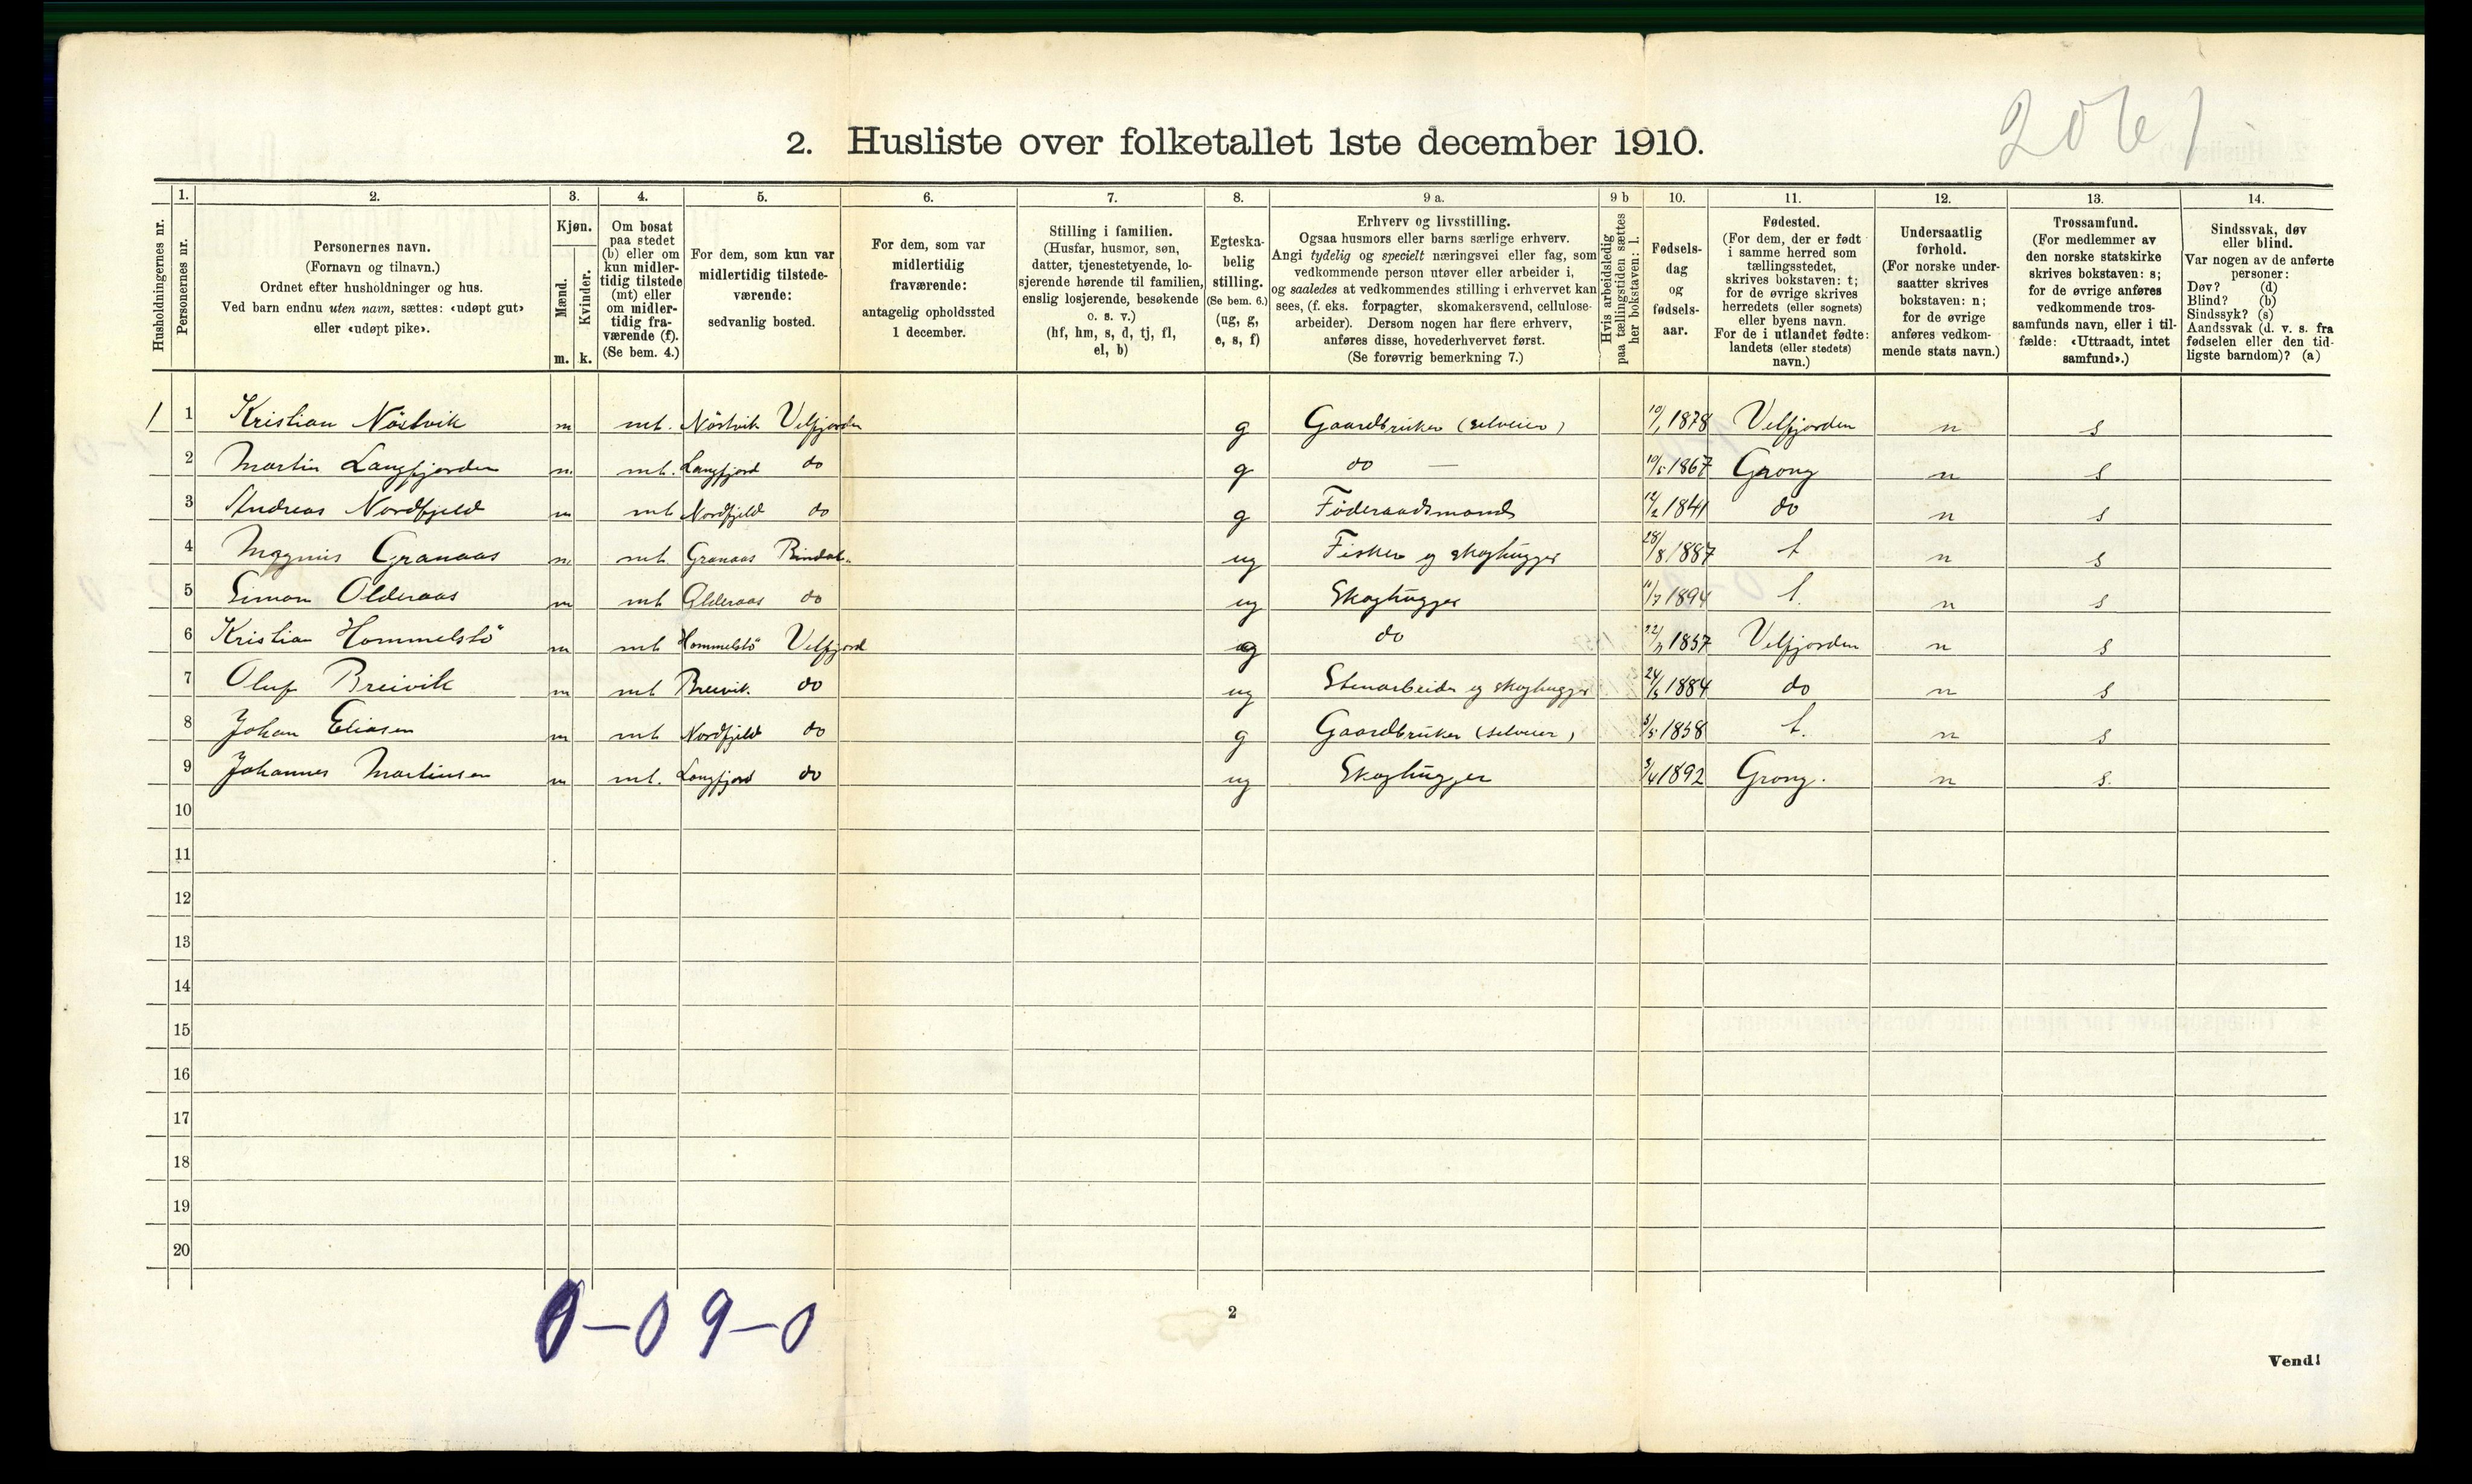 2061
2. Husliste over folketallet 1ste december 1910.
Husholdningernes nr.
1. Personernes nr.
2. Personernes navn.
(Fornavn og tilnavn.)
Ordnet efter husholdninger og hus.
Ved barn endnu uten navn, sættes: «udøpt gut»
eller «udøpt pike».
3. Kjøn.
Mænd. m.
Kvinder. k.
4. Om bosat
paa stedet
(b) eller om
kun midler-
tidig tilstede
(mt) eller
om midler-
tidig fra-
værende (f).
(Se bem. 4.)
5. For dem, som kun var
midlertidig tilstede-
værende:
sedvanlig bosted.
6. For dem, som var
midlertidig
fraværende:
antagelig opholdssted
1 december.
7. Stilling i familien.
(Husfar, husmor, søn,
datter, tjenestetyende, lo-
sjerende hørende til familien,
enslig losjerende, besøkende
o. s. v.)
(hf, hm, s, d, tj, fl,
el, b)
8. Egteska-
belig
stilling.
(Se bem. 6.)
(ug, g,
e, s, f)
9 a. Erhverv og livsstilling.
Ogsaa husmors eller barns særlige erhverv.
Angi tydelig og specielt næringsvei eller fag, som
vedkommende person utøver eller arbeider i,
og saaledes at vedkommendes stilling i erhvervet kan
sees, (f. eks. forpagter, skomakersvend, cellulose-
arbeider). Dersom nogen har flere erhverv,
anføres disse, hovederhvervet først.
(Se forøvrig bemerkning 7.)
9 b Hvis arbeidsledig
paa tællingstiden sættes
her bokstaven: l.
10. Fødsels-
dag
og
fødsels-
aar.
11. Fødested.
(For dem, der er født
i samme herred som
tællingsstedet,
skrives bokstaven: t;
for de øvrige skrives
herredets (eller sognets)
eller byens navn.
For de i utlandet fødte:
landets (eller stedets)
navn.)
12. Undersaatlig
forhold.
(For norske under-
saatter skrives
bokstaven: n;
for de øvrige
anføres vedkom-
mende stats navn.)
13. Trossamfund.
(For medlemmer av
den norske statskirke
skrives bokstaven: s;
for de øvrige anføres
vedkommende tros-
samfunds navn, eller i til-
fælde: «Uttraadt, intet
samfund».)
14. Sindssvak, døv
eller blind.
Var nogen av de anførte
personer:
Døv? (d)
Blind? (b)
Sindssyk? (s)
Aandssvak (d. v. s. fra
fødselen eller den tid-
ligste barndom)? (a)
1 1 Kristian Nöstvik m mt. Nöstvik Velfjorden g Gaardbruker (selveier) 10/1 1878 Velfjorden n s
2 Martin Langfjorden m. mt. Langfjord do g do — 10/5 1867 Grong n s
3 Andreas Nordfjeld m mt Nordfjeld do g Föderaadsmand 12/2 1841 do n s
4 Magnus Granaas m. mt Granaas Bindal. ug Fisker og skoghugger 28/8 1887 t n s
5 Simon Olderaas m mt Olderaas do ug Skoghugger 11/7 1894 t. n s
6 Kristian Hommelstö m mt Hommelstö Velfjord g do 1857 Velfjorden n s
7 Oluf Breivik m mt Breivik do ug Stenarbeider og skoghugger 24/5 1884 do n s
8 Johan Eliasen m mt Nordfjeld do g Gaardbruker (selveier) 3/5 1858 t. n s
9 Johannes Martinsen m mt. Langfjord do ug Skoghugger 3/4 1892 Grong. n s.
10
11
12
13
14
15
16
17
18
19
20
0-0 9-0
2
Vend!